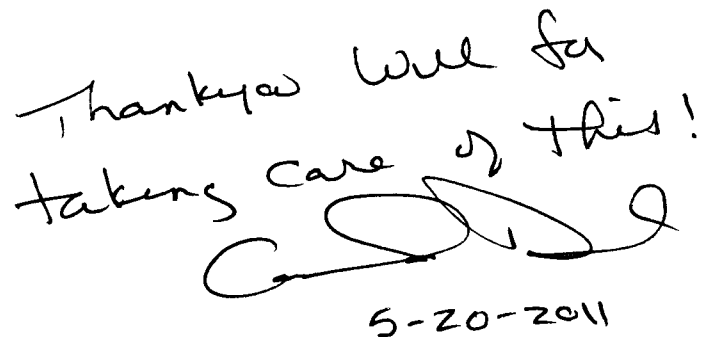 Thankyou Will for
taking care of this!
5-20-2011